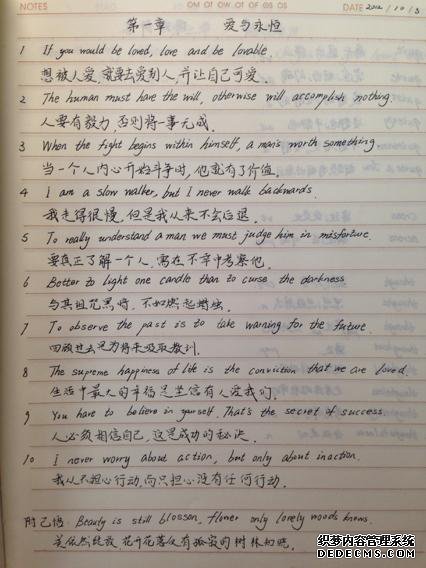 NOTES
DATE 2012/10/3
第一章 爱与永恒
1 If you would be loved, love and be lovable.
想被人爱,就要去爱别人,并让自己可爱.
2 The human must have the will, otherwise will accomplish nothing.
人要有毅力,否则将一事无成.
3 When the fight begins within himself, a man's worth something.
当一个人内心开始斗争时,他就有了价值.
4 I am a slow walker, but I never walk backwards.
我走得很慢,但是我从来不会后退.
5 To really understand a man we must judge him in misfortune.
要真正了解一个人,需在不幸中考察他.
6 Better to light one candle than to curse the darkness
与其诅咒黑暗,不如燃起蜡烛.
7 To observe the past is to take warning for the future.
回顾过去是为将来吸取教训.
8 The supreme happiness of life is the conviction that we are loved.
生活中最大的幸福是坚信有人爱我们.
9 You have to believe in yourself. That's the secret of success.
人必须相信自己,这是成功的秘诀.
10 I never worry about action, but only about inaction.
我从不担心行动,而只担心没有任何行动.
附己悟: Beauty is still blosson, flower only lonely woods knows.
美依然绽放 花开花落仅有孤寂的树林知晓.
织梦内容管理系统
DEDECMS.COM